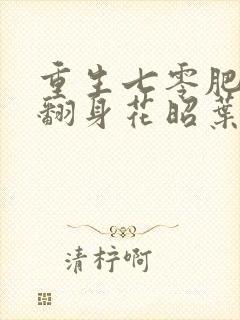 重生七零肥
翻身花昭葉
清柠啊